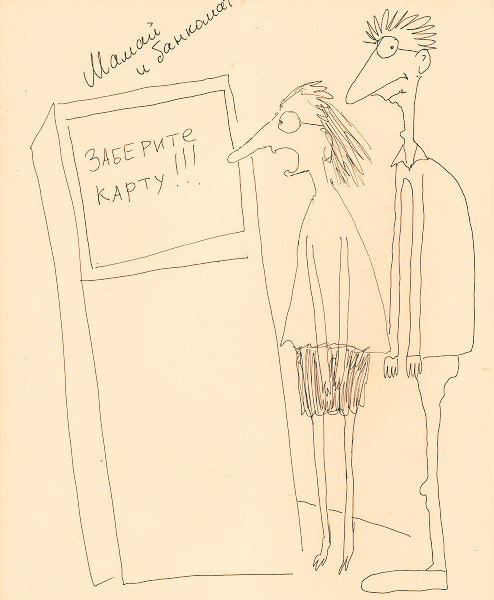 Мамай
и банкомат
ЗАБЕРИТЕ
КАРТУ!!!